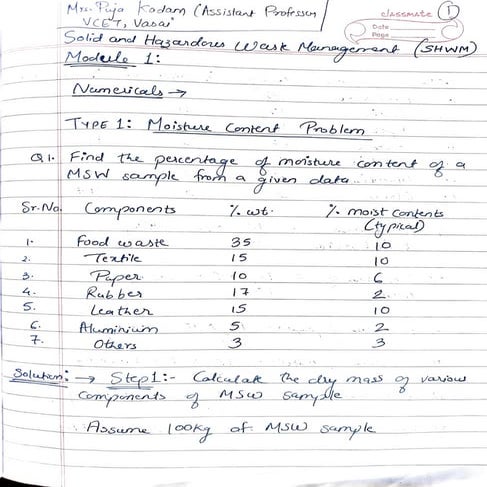 Mrs. Puja Kadam (Assistant Professor)
VCET, Vasai
classmate
Date
Page
1
Solid and Hazardous Waste Management (SHWM)
Module 1:
Numericals →
TYPE 1: Moisture Content Problem
Q1. Find the percentage of moisture content of a
MSW sample from a given data.
Sr.No. Components % wt. % moist contents
(typical)
1. Food waste 35 10
2. Textile 15 10
3. Paper 10 6
4. Rubber 17 2
5. Leather 15 10
6. Aluminium 5 2
7. Others 3 3
Solution: → Step 1:- Calculate the dry mass of various
components of MSW sample
Assume 100kg of MSW sample